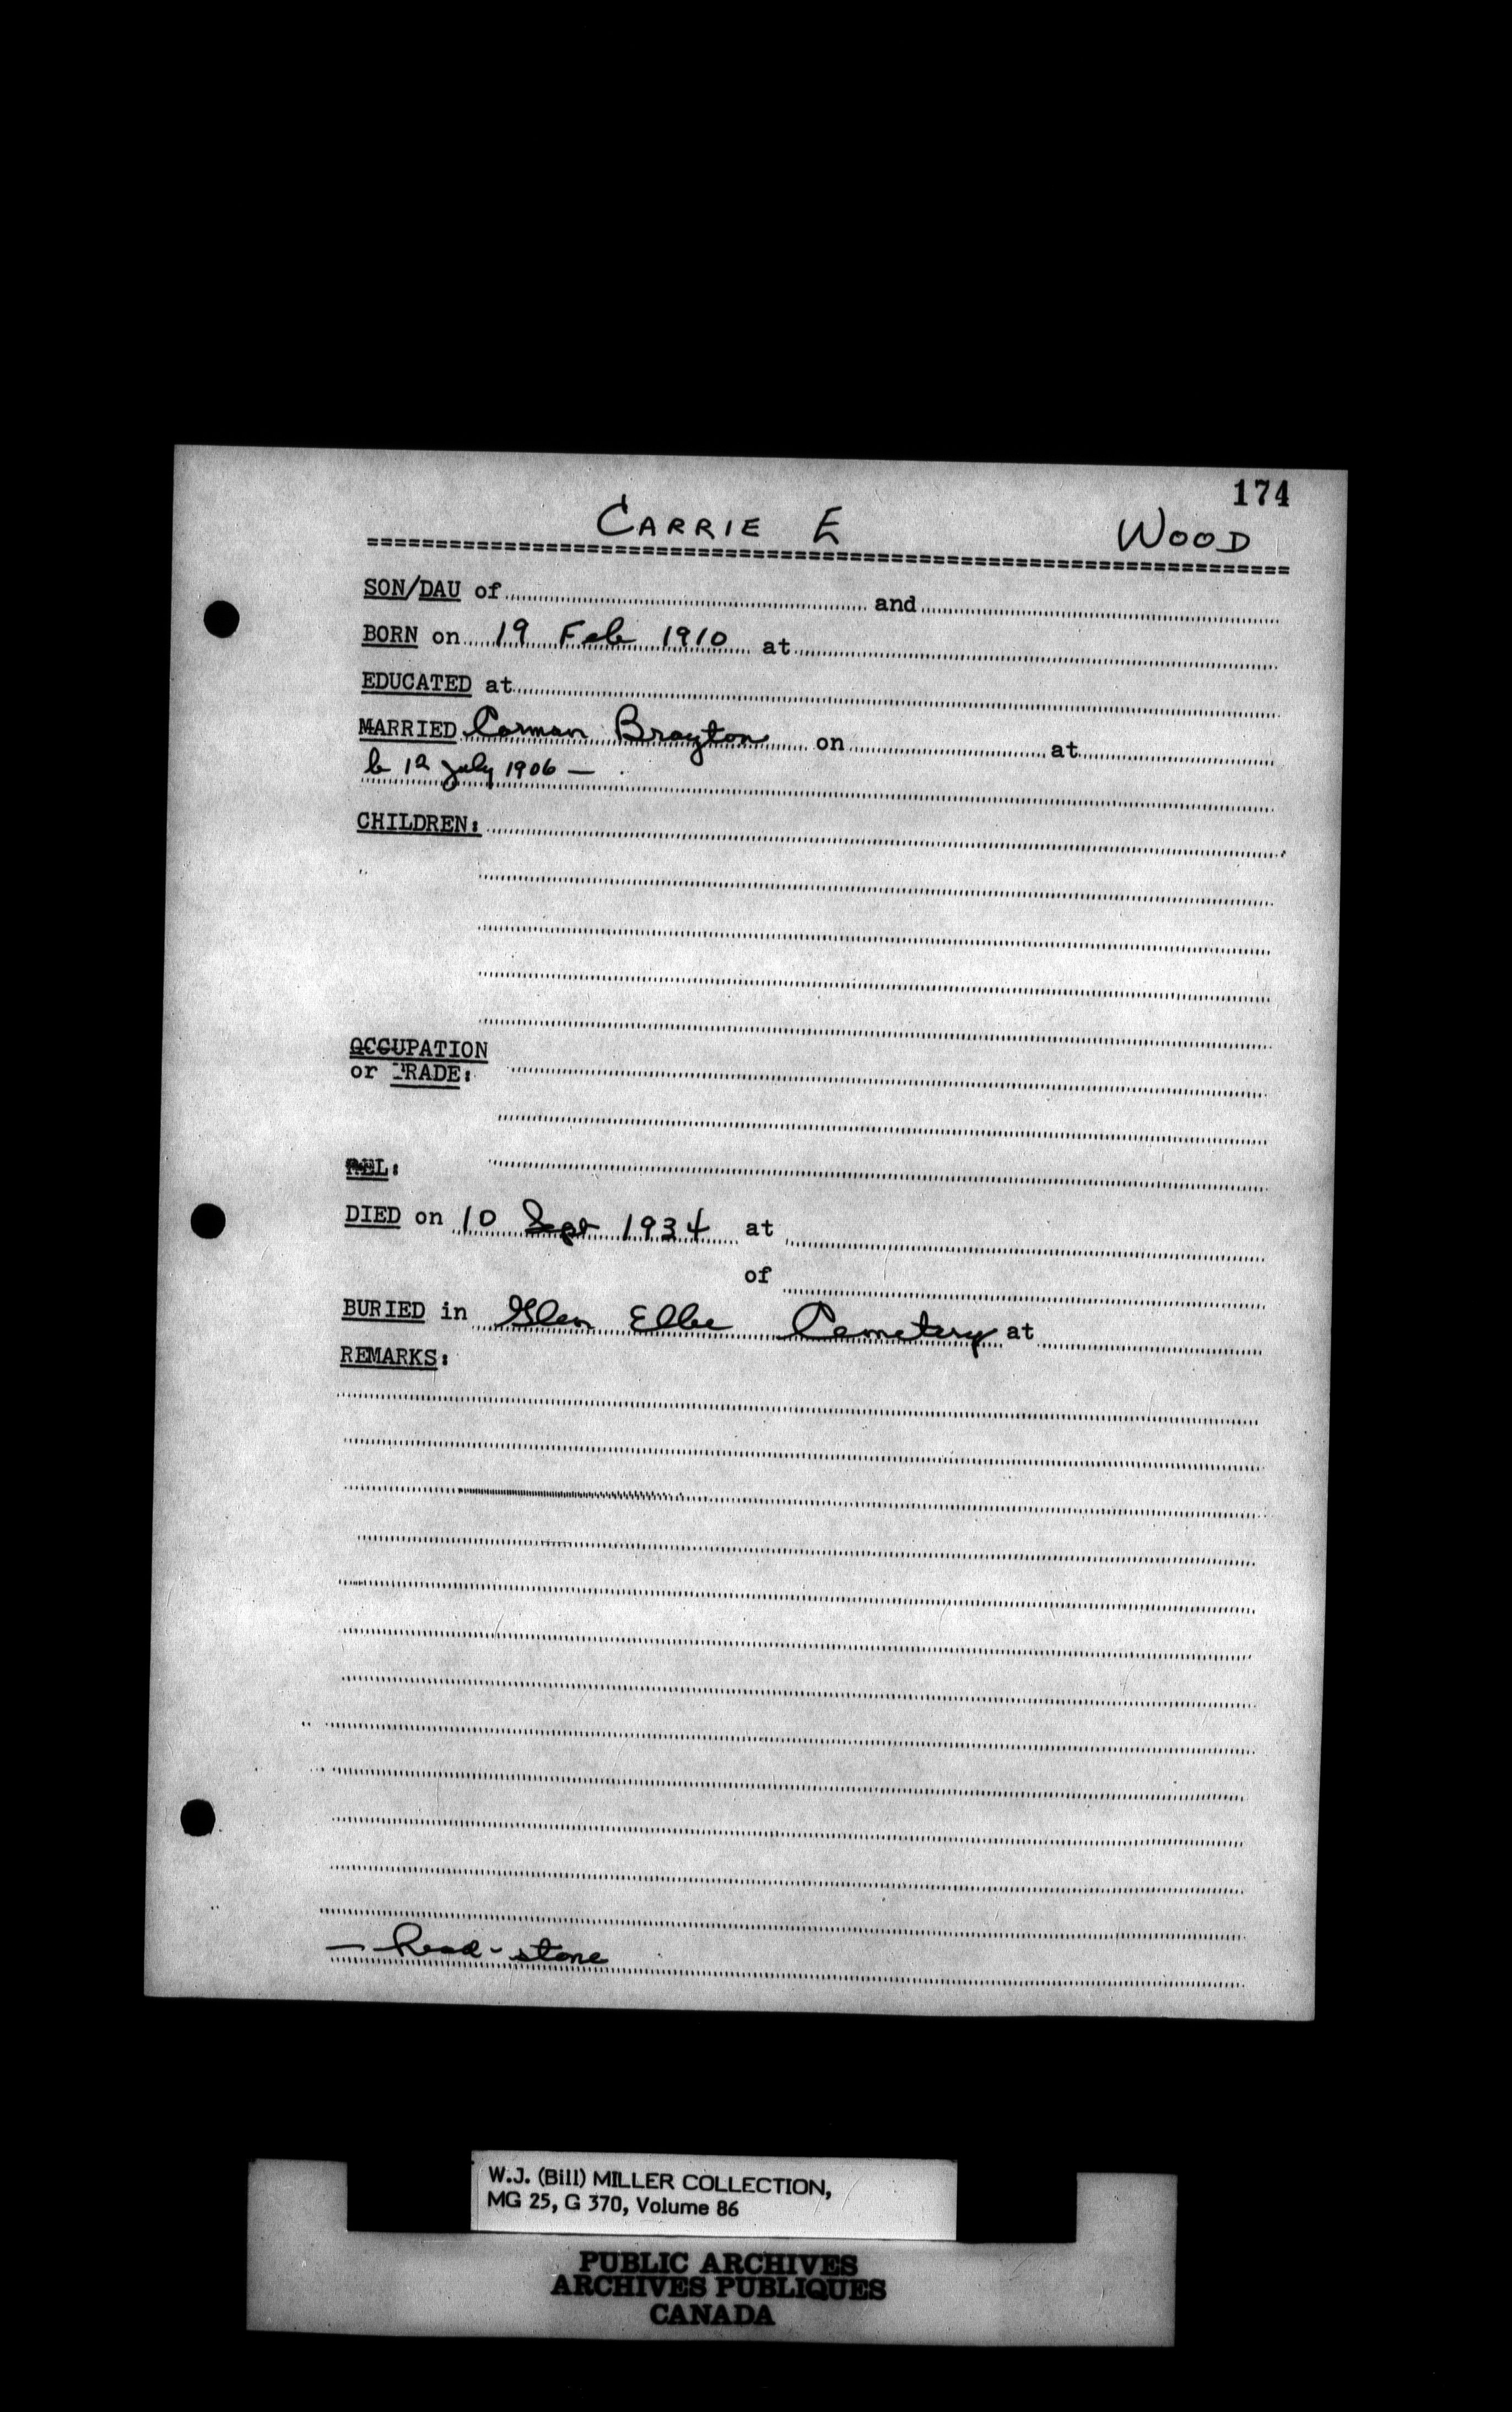 174
CARRIE E WOOD
SON/DAU of and
BORN on 19 Feb 1910 at
EDUCATED at
MARRIED Carman Brayton on at
b 12 July 1906 —
CHILDREN:
OCCUPATION
or TRADE:
REL:
DIED on 10 Sept 1934 at
of
BURIED in Glen Elbe Cemetery at
REMARKS:
— head-stone
W.J. (Bill) MILLER COLLECTION,
MG 25, G 370, Volume 86
PUBLIC ARCHIVES
ARCHIVES PUBLIQUES
CANADA